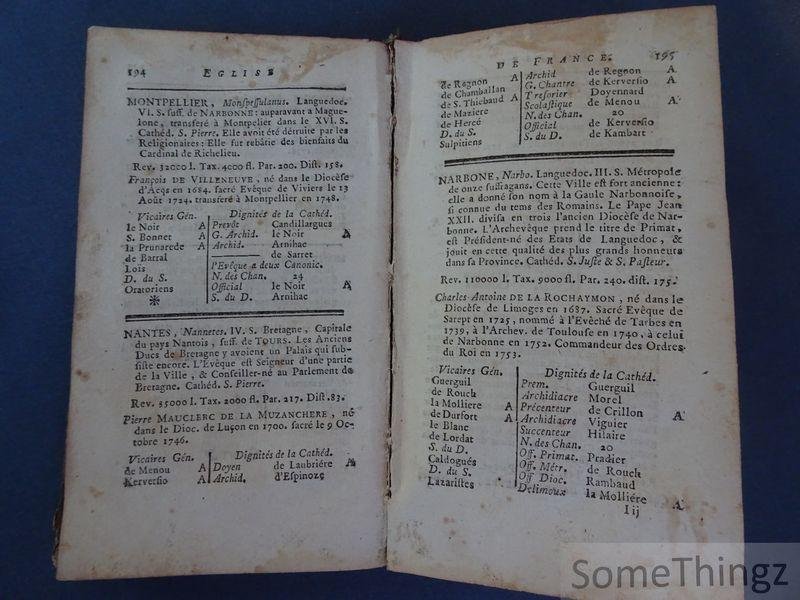 194 EGLISE
MONTPELLIER, Monspessulanus. Languedoc.
VI. S. suff. de NARBONNE: auparavant a Mague-
lone, transferé à Montpelier dans le XVI. S.
Cathéd. S. Pierre. Elle avoit été détruite par les
Religionaires: Elle fut rebâtie des bienfaits du
Cardinal de Richelieu.
Rev. 32000 l. Tax. 4000 fl. Par. 200. Dist. 158.
François DE VILLENEUVE, né dans le Diocèse
d'Acqs en 1684. sacré Evêque de Viviers le 13
Août 1724. transferé à Montpellier en 1748.
Vicaires Gén. Dignités de la Cathéd.
le Noir A Prevôt Candillargues
S. Bonnet A G. Archid. le Noir A
la Prunarede A Archid. Arnihac
de Barral de Sarret
Lois l'Evêque a deux Canonic.
D. du S. N. des Chan. 24
Oratoriens Official le Noir A
* S. du D. Arnihac
NANTES, Nannetes. IV. S. Bretagne, Capitale
du pays Nantois, suff. de TOURS. Les Anciens
Ducs de Bretagne y avoient un Palais qui sub-
siste encore. L'Évêque est Seigneur d'une partie
de la Ville, & Conseiller-né au Parlement de
Bretagne. Cathéd. S. Pierre.
Rev. 35000 l. Tax. 2000 fl. Par. 217. Dist. 83.
Pierre MAUCLERC DE LA MUZANCHERE, né
dans le Dioc. de Luçon en 1700. sacré le 9 Oc-
tobre 1746.
Vicaires Gén. Dignités de la Cathéd.
de Menou A Doyen de Laubriére A
Kerversio A Archid. d'Espinoze
DE FRANCE. 195
de Regnon A Archid de Regnon A
de Chamballan G. Chantre de Kerversio A
de S. Thiebaud A Tresorier Doyennard
de Maziere Scolastique de Menou A
de Hercé N. des Chan. 20
D. du S. Official de Kerversio
Sulpitiens S. du D. de Kambart
NARBONE, Narbo. Languedoc. III. S. Métropole
de onze suffragans. Cette Ville est fort ancienne:
elle a donné son nom à la Gaule Narbonnoise,
si connue du tems des Romains. Le Pape Jean
XXII. divisa en trois l'ancien Diocèse de Nar-
bonne. L'Archevêque prend le titre de Primat,
est Président-né des Etats de Languedoc, &
jouit en cette qualité des plus grands honneurs
dans sa Province. Cathéd. S. Juste & S. Pasteur.
Rev. 110000 l. Tax. 9000 fl. Par. 240. dist. 175.
Charles-Antoine DE LA ROCHAYMON, né dans le
Diocèse de Limoges en 1687. Sacré Evêque de
Sarept en 1725, nommé à l'Evêché de Tarbes en
1739, à l'Archev. de Toulouse en 1740, à celui
de Narbonne en 1752. Commandeur des Ordres
du Roi en 1753.
Vicaires Gén. Dignités de la Cathéd.
Guerguil Prem. Guerguil
de Rouch Archidiacre Morel
la Molliere A Précenteur de Crillon A
de Durfort A Archidiacre Viguier
le Blanc Succenteur Hilaire
de Lordat N. des Chan. 20
S. du D. Off. Primat. Pradier
Caldogués Off. Métr. de Rouch
D. du S. Off Dioc. Rambaud
Lazaristes Delimoux la Molliére A
I ij
SomeThingz